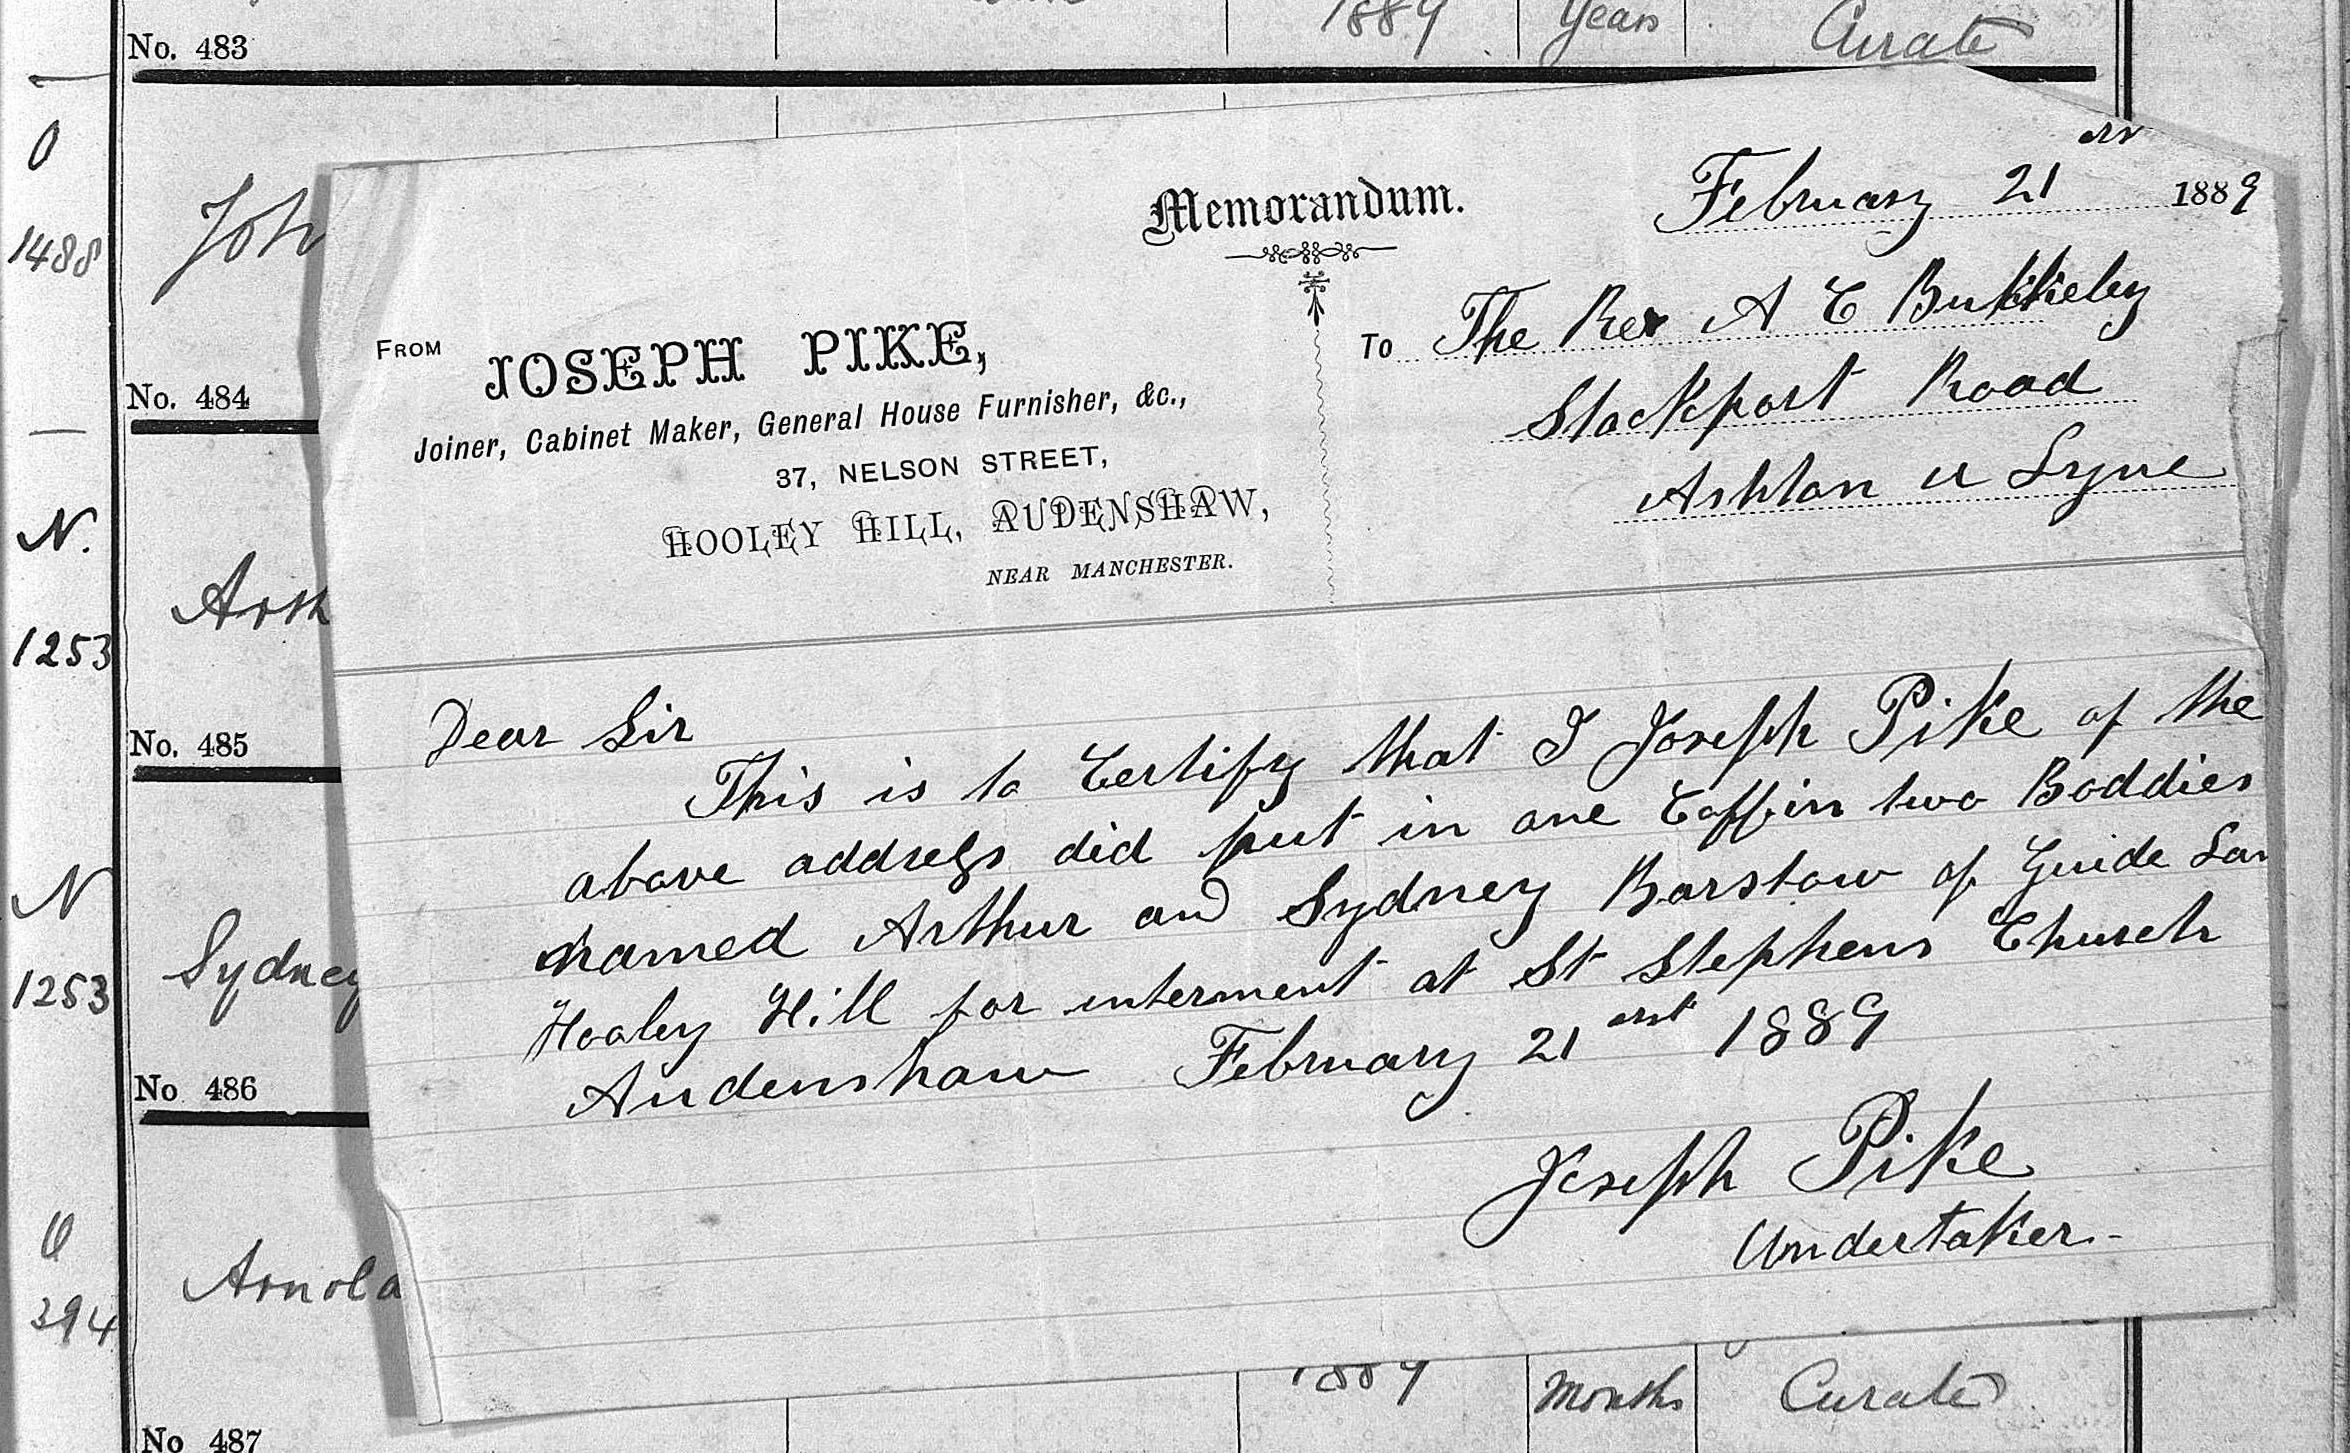 1889 Years Curate
No. 483
0
1488 Joh
No. 484
N.
1253 Arth
No. 485
N
1253 Sydney
No 486
394 Arnold
1889 Months Curate
No 487
Memorandum.
February 21 1889
FROM JOSEPH PIKE,
Joiner, Cabinet Maker, General House Furnisher, &c.,
37, NELSON STREET,
HOOLEY HILL, AUDENSHAW,
NEAR MANCHESTER.
To The Rev A C
Stockport Road
Ashton u Lyne
Dear Sir
This is to Certify that I Joseph Pike of the
above address did put in one Coffin two Boddies
named Arthur and Sydney Barstow of Guide Lan
Hooley Hill for interment at St Stephens Church
Audenshaw February 21 erst 1889
Joseph Pike
Undertaker.-